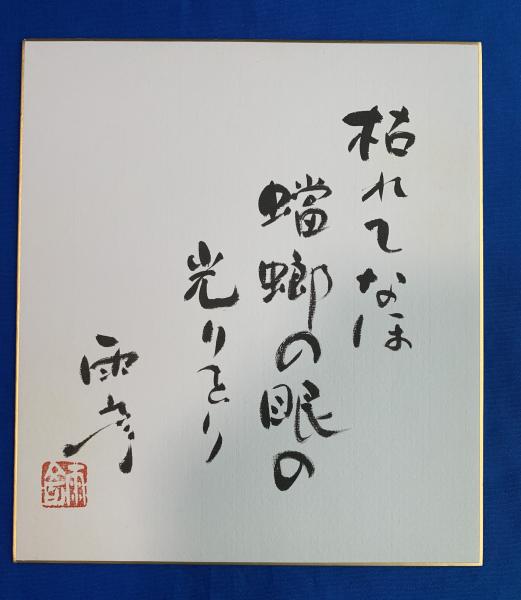 枯れてなほ
蟷螂の眼の
光りをり
雨彦